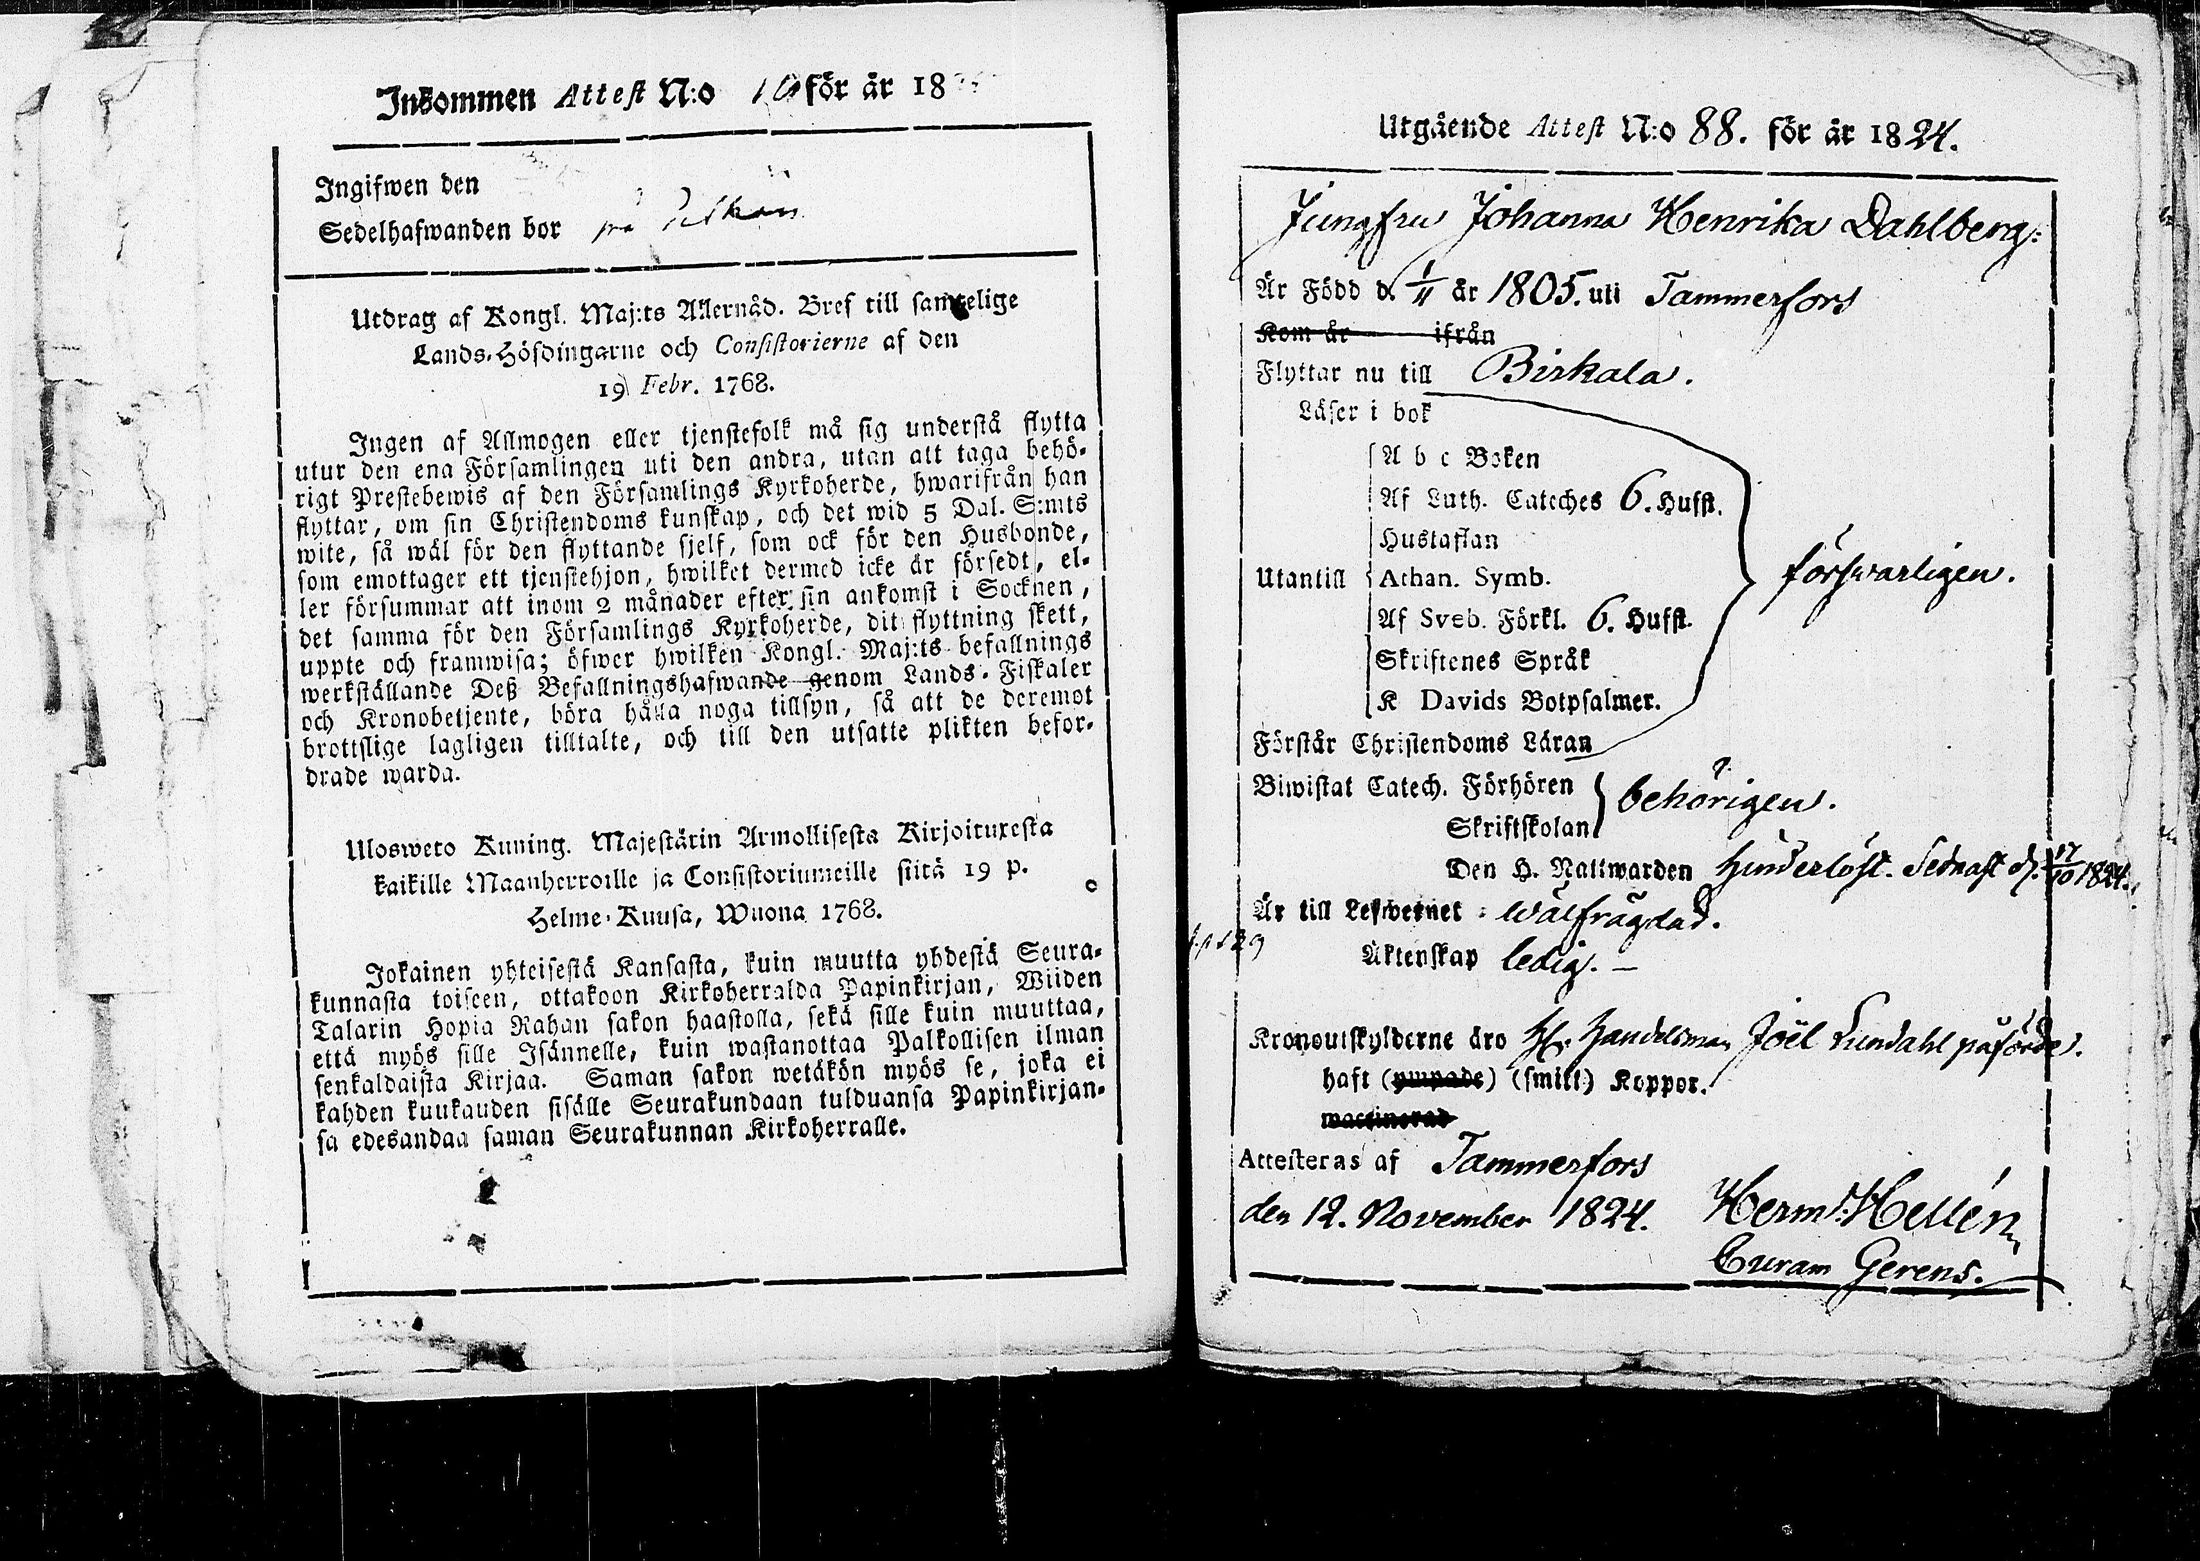 Inkommen Attest N:o 16 för år 18
Ingifwen den
Sedelhafwanden bor på
Utdrag af Kongl. Maj:ts Allernåd. Bref till samtelige
Lands-Höfdingarne och Consistorierne af den
19 Febr. 1768.
Ingen af Allmogen eller tjenstefolk må sig understå flytta
utur den ena Församlingen uti den andra, utan att taga behö-
rigt Prestebewis af den Församlings Kyrkoherde, hwarifrån han
flyttar, om sin Christendoms kunskap, och det wid 5 Dal. S:mts
wite, så wäl för den flyttande sjelf, som ock för den Husbonde,
som emottager ett tjenstehjon, hwilket dermed icke är försedt, el-
ler försummar att inom 2 månader efter sin ankomst i Socknen,
det samma för den Församlings Kyrkoherde, dit flyttning skett,
uppte och framwisa; öfwer hwilken Kongl. Maj:ts befallnings
werkställande Deß Befallningshafwande genom Lands-Fiskaler
och Kronobetjente, böra hålla noga tillsyn, så att de deremot
brottslige lagligen tilltalte, och till den utsatte plikten befor-
drade warda.
Ulosweto Kuning. Majestärin Armollisesta Kirjoituxesta
kaikille Maanherroille ja Consistoriumeille siitä 19 p.
Helme-Kuusa, Wuona 1768.
Jokainen yhteisestä Kansasta, kuin muutta yhdestä Seura-
kunnasta toiseen, ottakoon Kirkoherralda Papinkirjan, Wiiden
Talarin Hopia Rahan sakon haastolla, sekä sille kuin muuttaa,
että myös sille Isännelle, kuin wastanottaa Palkollisen ilman
senkaldaista Kirjaa. Saman sakon wetäkön myös se, joka ei
kahden kuukauden sisälle Seurakundaan tulduansa Papinkirjan-
sa edesandaa saman Seurakunnan Kirkoherralle.
Utgående Attest N:o 88. för år 1824.
Jungfru Johanna Henrika Dahlberg:
Är Född d. 1/11 år 1805. uti Tammerfors
Kom år ifrån
Flyttar nu till Birkala.
Läser i bok
A b c Boken
Af Luth. Cateches 6. Hufst.
Hustaflan
Utantill Athan. Symb. försvarligen.
Af Sveb. Förkl. 6. Hufst.
Skriftenes Språk
K Davids Botpsalmer.
Förstår Christendoms Läran
Biwistat Catech. Förhören behörigen.
Skriftskolan
Den H. Nattwarden hinderlöst. Sednast d. 17/10 1824.
Är till Lefwernet wälfrägdad.
Äktenskap ledig. —
Kronoutskylderne äro Hr Handelsman Joël Lundahl påförde.
haft (ympade) (smitt) Koppor.
waccinerad
Attesteras af Tammerfors
den 12. November 1824. Herm: Hellén
Curam Gerens.